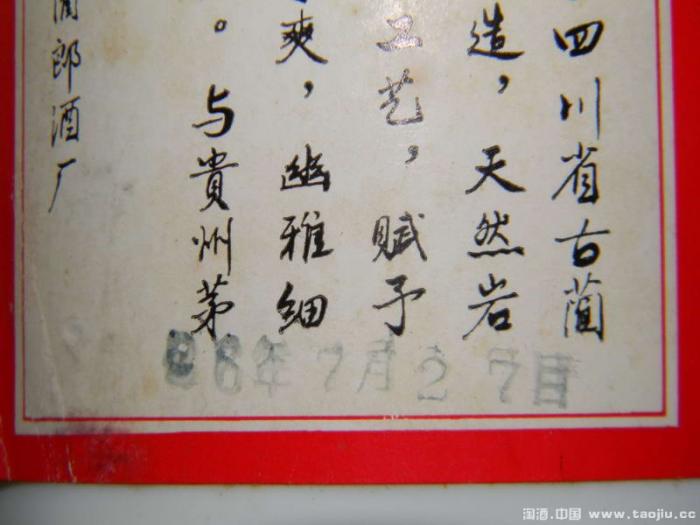 四川省古蔺
造，天然岩
工艺，赋予
爽，幽雅细
。与贵州茅
郎酒厂
86年7月27日
淘酒.中国 www.taojiu.cc